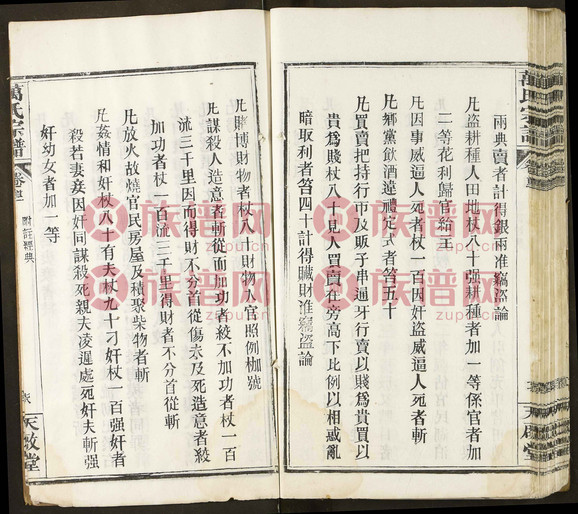 兩典賣者計得銀兩准竊盜論
凡盜耕種人田地杖八十強耕種者加一等係官者加
二等花利歸官給主
凡因事威逼人死者杖一百因奸盜威逼人死者斬
凡鄉黨飲酒違禮定式者笞五十
凡買賣把持行市及販子串通牙行賣以賤為貴買以
貴為賤杖八十見人買賣在旁高下比例以相惑亂
暗取利者笞四十計得贓財准竊盜論
凡賭博財物者杖八十財物入官照例枷號
凡謀殺人造意者斬從而加功者絞不加功者杖一百
流三千里因而得財不分首從傷未及死造意者絞
加功者杖一百流三千里得財者不分首從斬
凡放火故燒官民房屋及積聚柴物者斬
凡姦情和奸杖八十有夫杖九十刁奸杖一百強奸者
殺若妻妾因奸同謀殺死親夫凌遲處死奸夫斬强
奸幼女者加一等
萬氏宗譜
附註經典
天啟堂
天啟堂
族谱网
zupu.cn
族谱网
zupu.cn
族谱网
zupu.cn
族谱网
zupu.cn